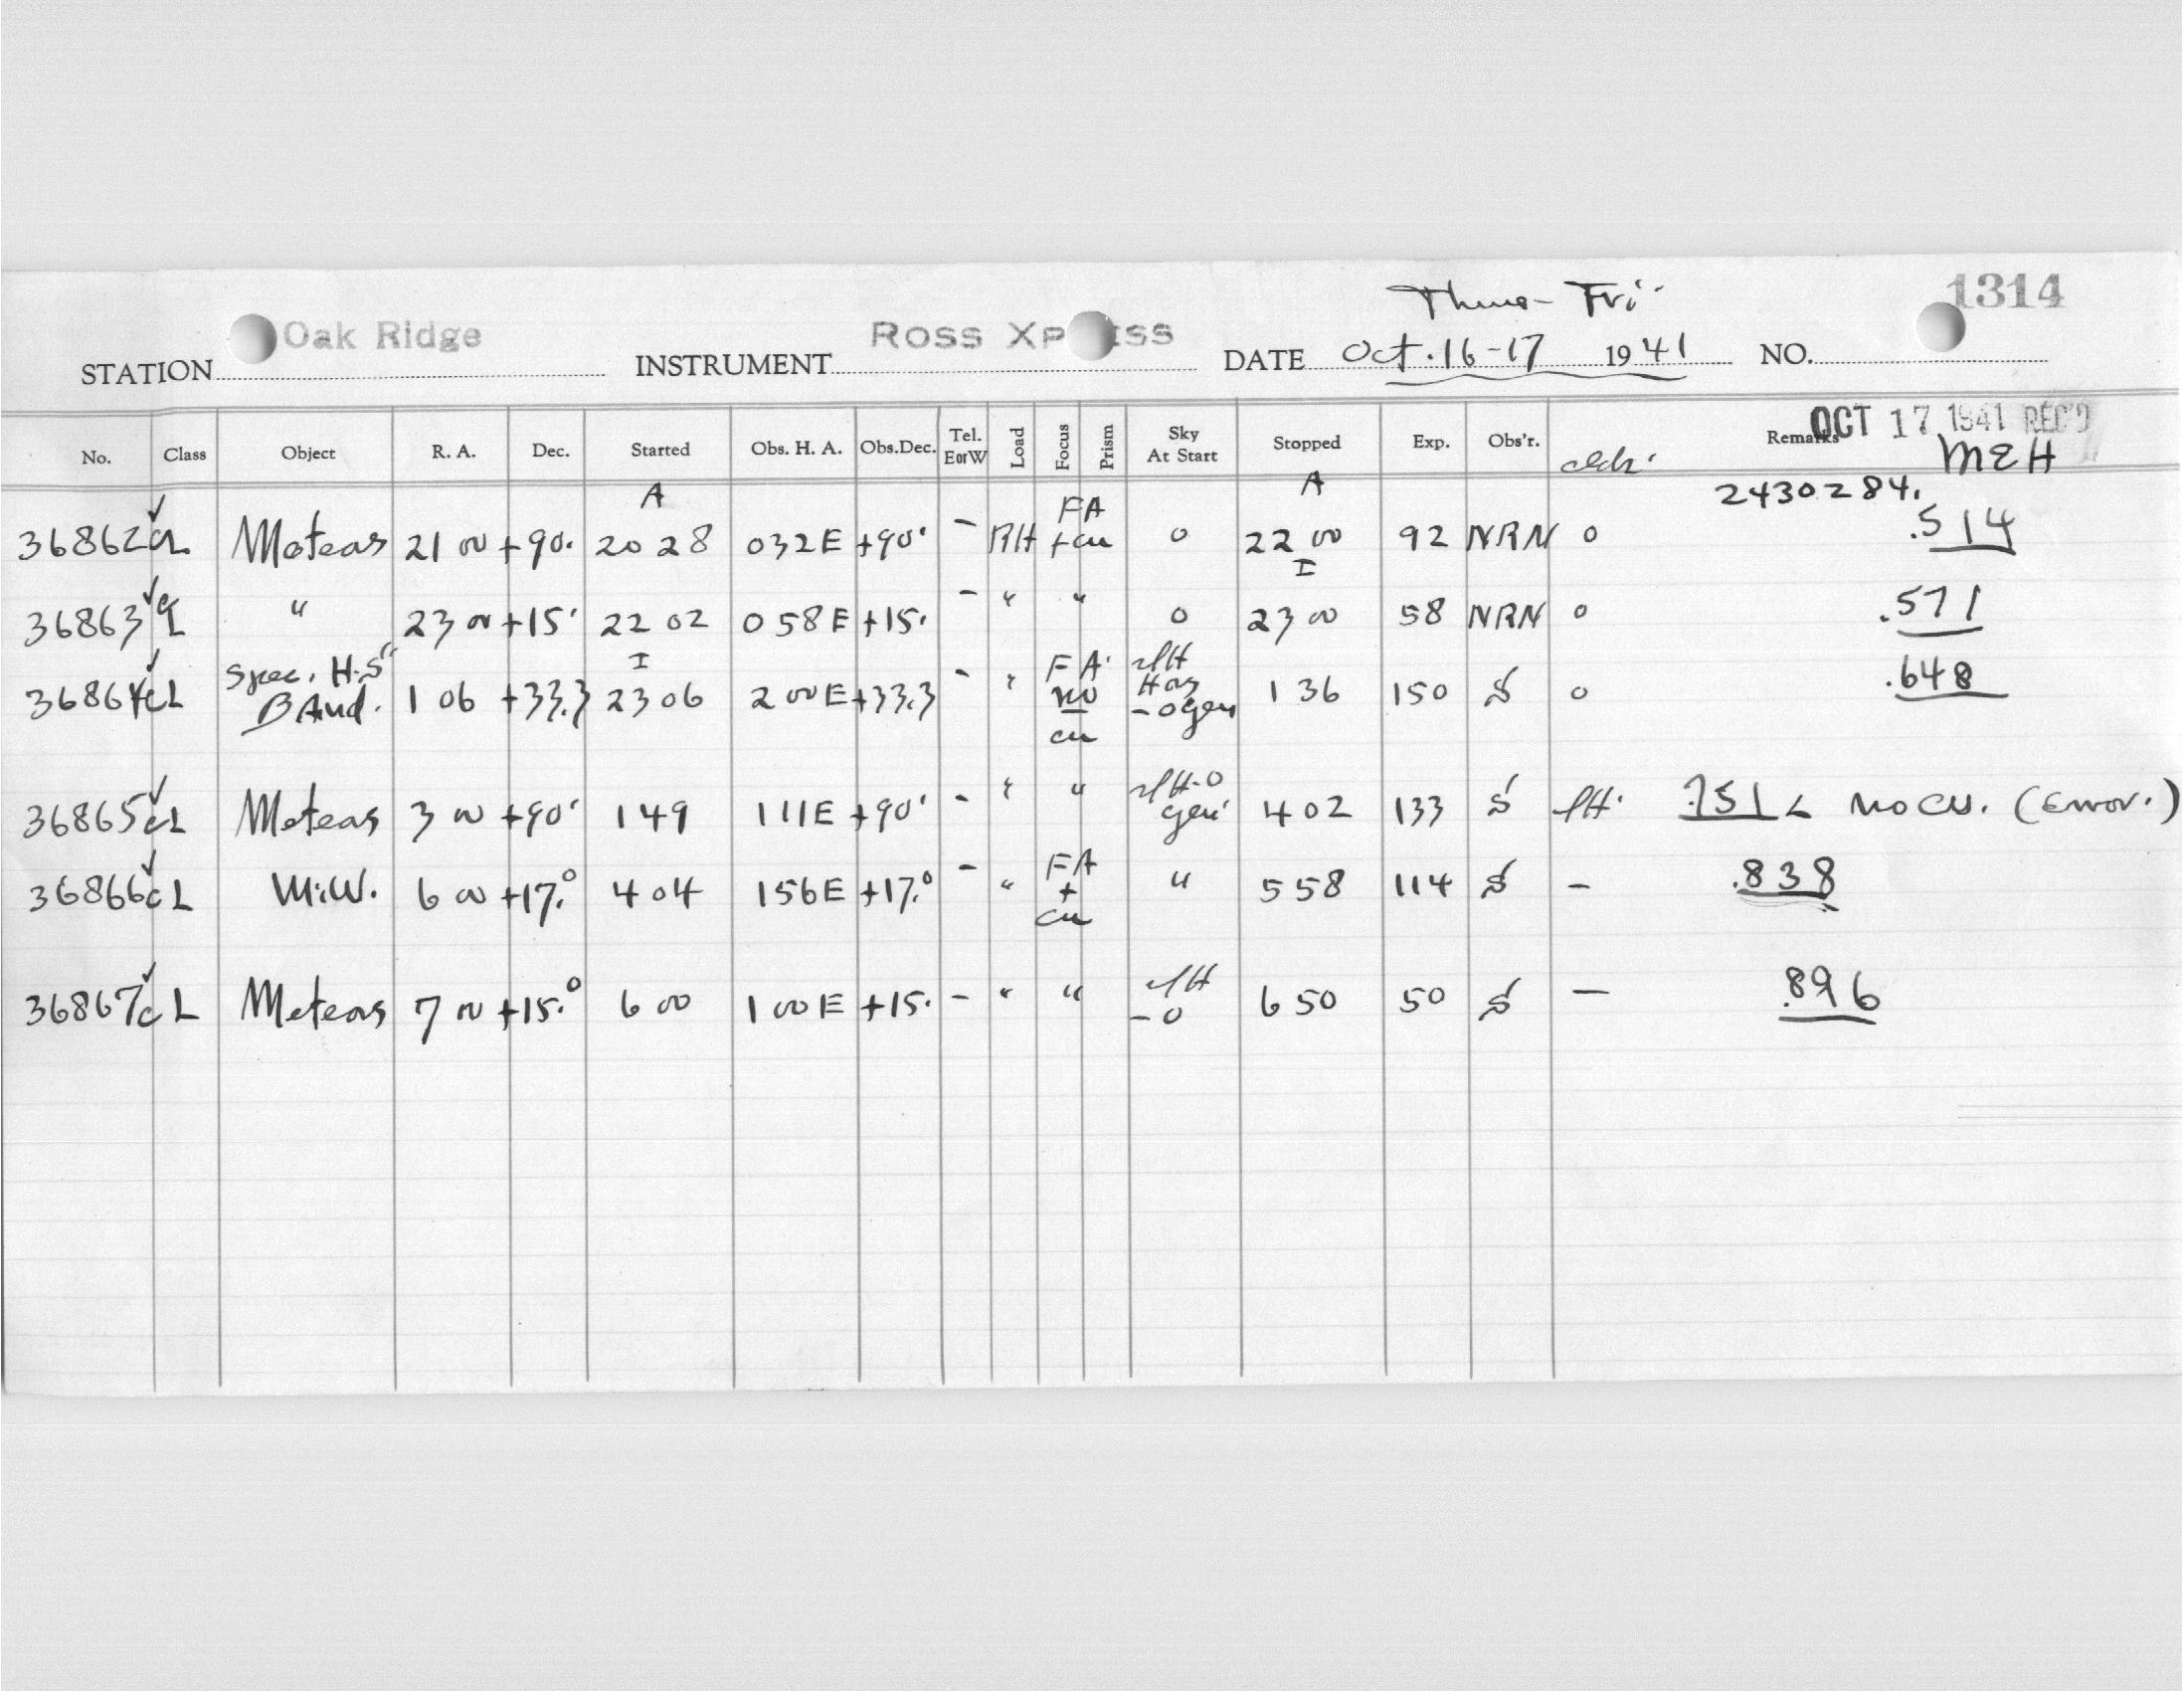 Thurs - Fri. 1314
STATION Oak Ridge INSTRUMENT Ross Xp ss DATE Oct. 16-17 1941 NO.
OCT 17 1941 REC'D
No. Class Object R. A. Dec. Started Obs. H. A. Obs.Dec. Tel. E or W Load Focus Prism Sky At Start Stopped Exp. Obs'r. Remarks
MEH
A A 2430284.
36862 ✓ Meteors 21 00 +90. 20 28 0 32 E +90. - RH FA + cu 0 22 00 92 NRN 0 .514
I
36863 ✓ " 23 00 +15. 22 02 0 58 E +15. - " " 0 23 00 58 NRN 0 .571
I
36864 ✓ cL Spec. H.S. B And. 1 06 +33.3 23 06 2 00 E +33.3 - " FA. no cu 1 36 150 S 0 .648
36865 ✓ cL Meteors 3 00 +90. 1 49 1 11 E +90. - " " 4 02 133 S .751 L no cu. (Error.)
36866 ✓ cL M.W. 6 00 +17.° 4 04 1 56 E +17.° - " FA + cu " 5 58 114 S - .838
36867 ✓ cL Meteors 7 00 +15.° 6 00 1 00 E +15. - " " 6 50 50 S - .896